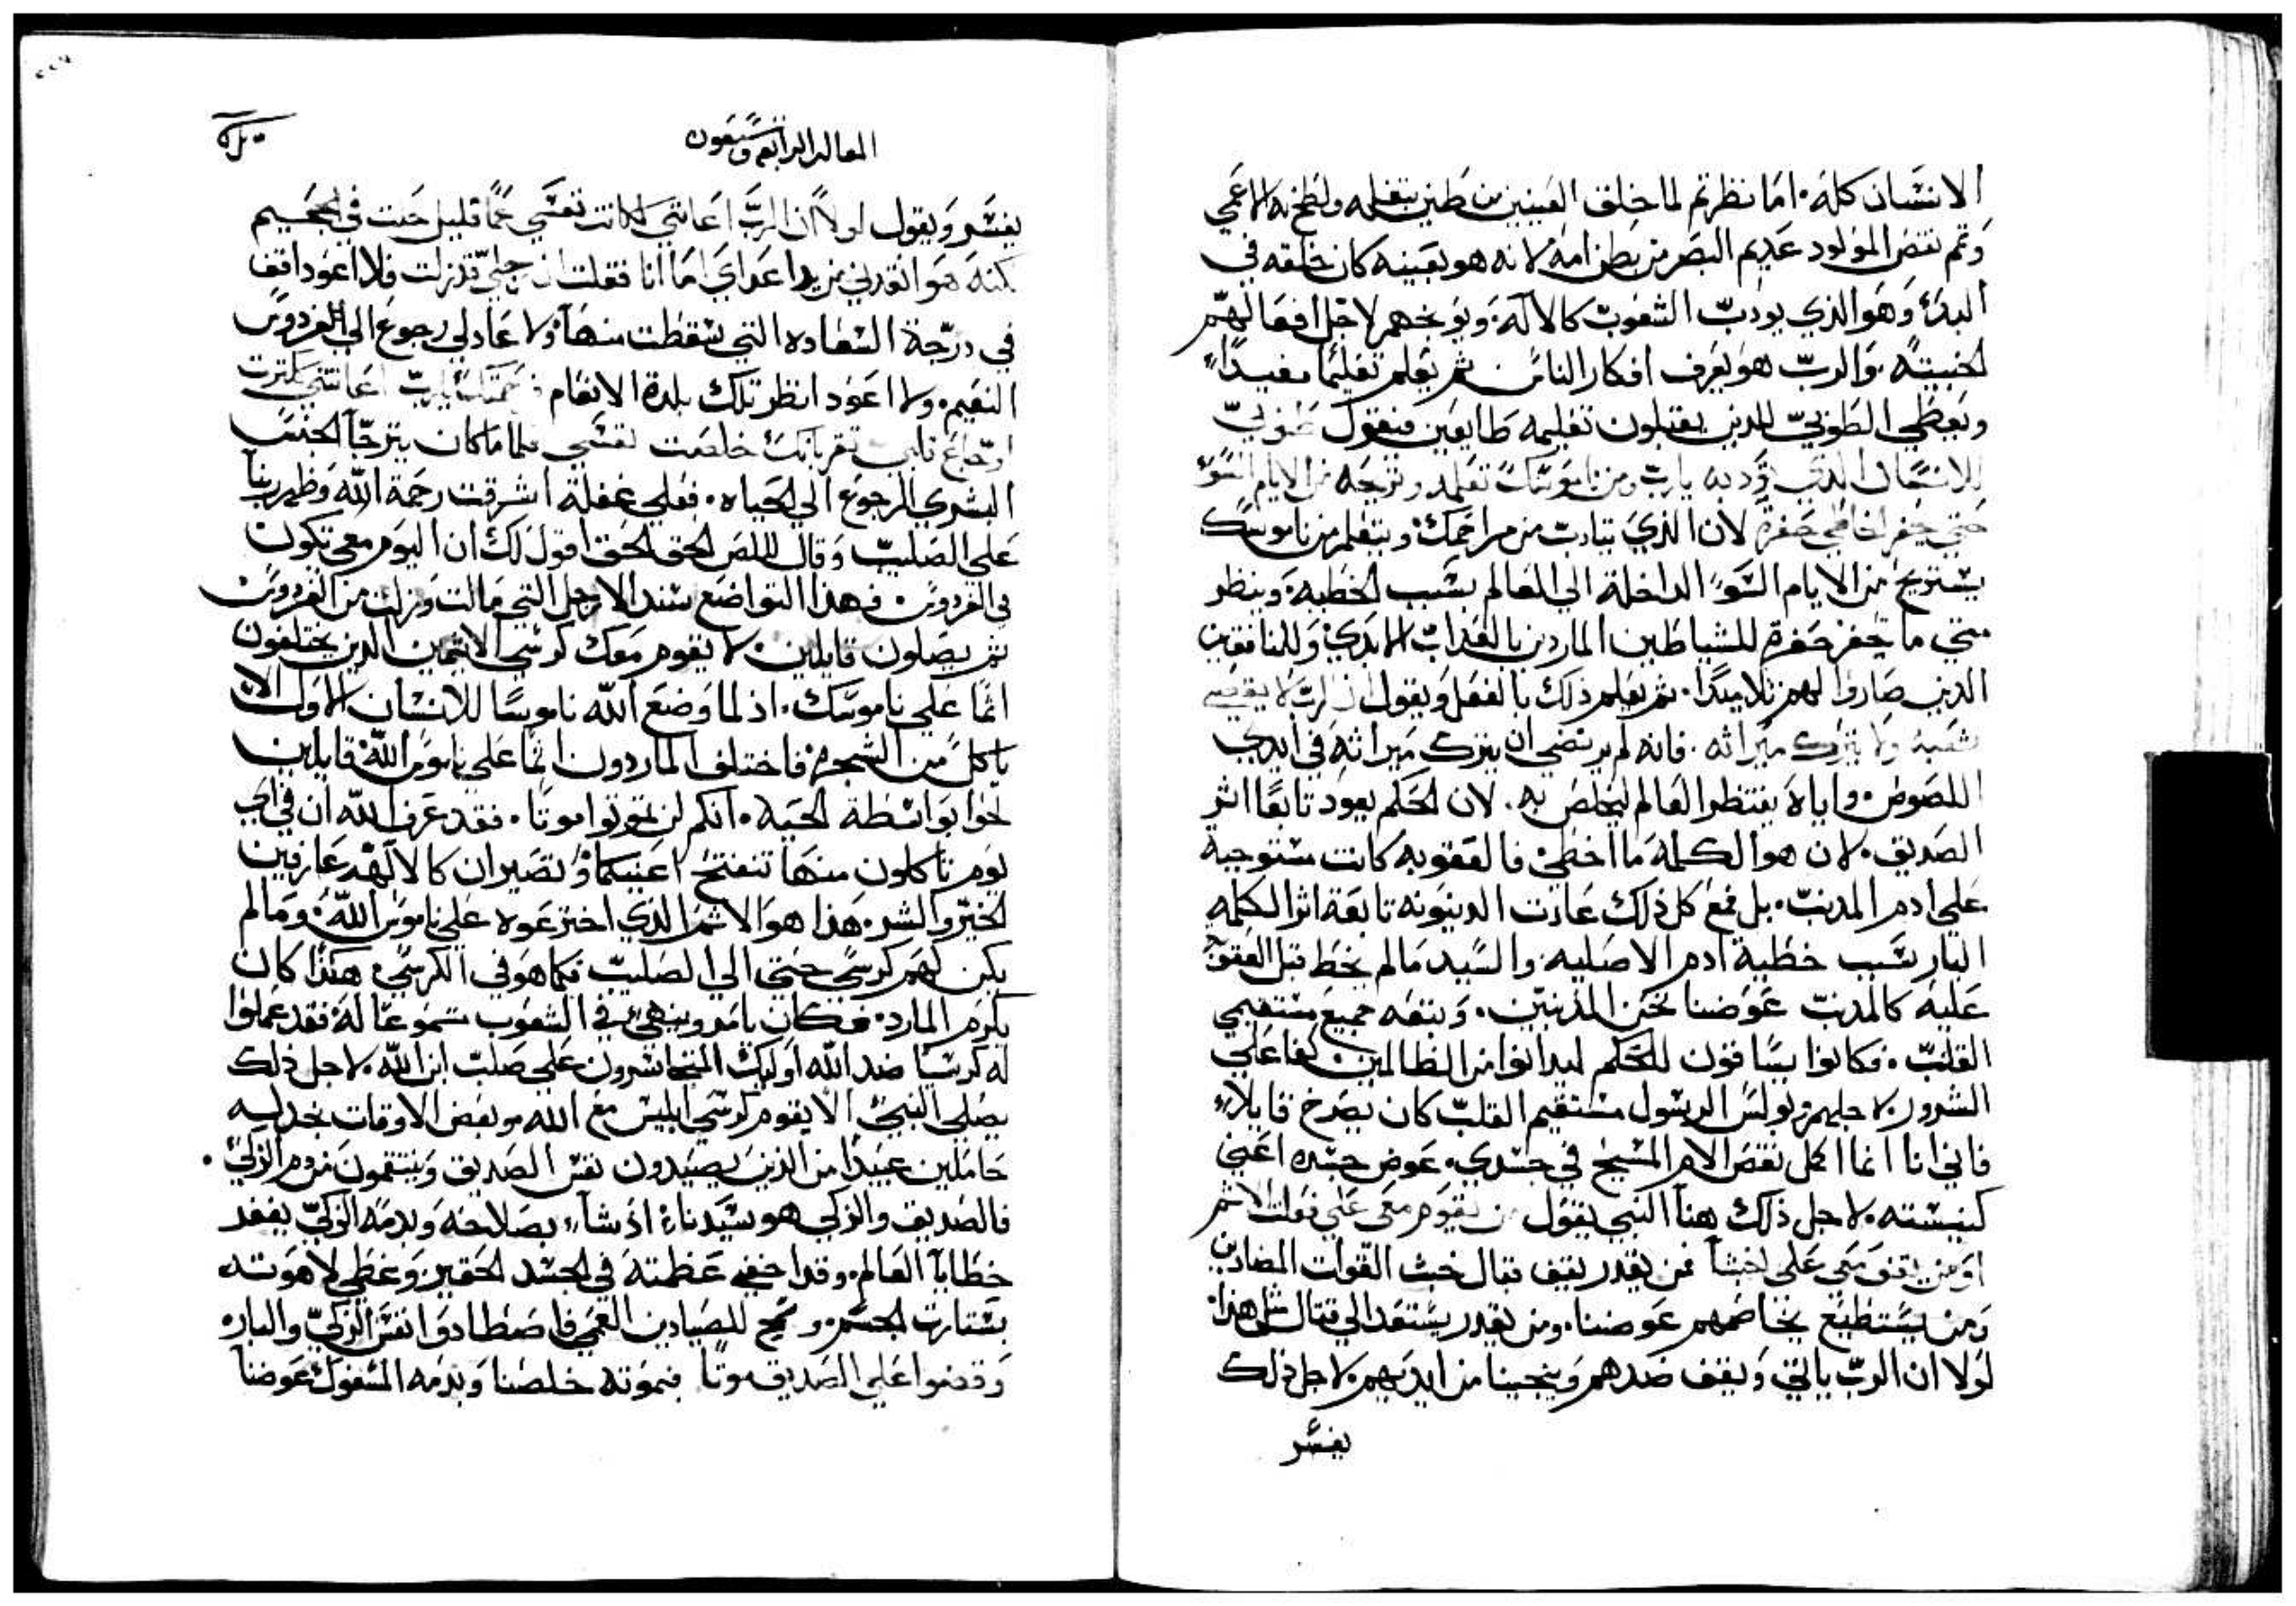 الانسان كله. اما نظرتم لما خلق العينين من طين بتفله ولطخ به الاعمي
وتم نقص المولود عديم البصر من بطن امه لانه هو بعينه كان خلقه في
البدء وهو الذي يودب الشعوب كالاله. ويوبخهم لاجل افعالهم
الخبيثه. والرب هو يعرف افكار الناس ثم يعلم تعليما مفيدا
ويعطي الطوبي للذين يقتبلون تعليمه طايعين فيقول طوبي
للانسان الذي تودبه يارب ومن ناموسك تعلمه وتريحه من الايام السوء
حتي يحفر للخاطي حفرة لان الذي يتادب من مراحمك ويتعلم من ناموسك
يستريح من الايام السوء الداخلة الي العالم بسبب الخطيه. وينظر
متي ما تحفر حفرة للشياطين الماردين بالعذاب الابدي وللمنافقين
الذين صاروا لهم تلاميدا. ثم يعلم ذلك بالفعل ويقول ان الرب لا يقصي
شعبه ولا يترك ميراثه. فانه لم يرتضي ان يترك ميراثه في ايدي
اللصوص. واياه ينتظر العالم ليخلص به. لان الحكم يعود تابعا اثر
الصديق. لان هو الكلمه ما اخطئ فالعقوبه كانت مستوجبة
علي ادم المدنب. بل فمع كل ذلك عادت الدينونه تابعة اثر الكلمه
البار بسبب خطية ادم الاصليه. والسيد مالم يخط قبل العقوبة
عليه كالمدنب عوضنا نحن المذنبين. وتبعه جميع مستقيمي
القلب. فكانوا يساقون للحكم ليدانوا من الظالمين فاعلي
الشرور لاجلهم. وبولس الرسول مستقيم القلب كان يصرخ قايلا
فاني انا انما اكمل نقص الام المسيح في جسدي. عوض جسده اعني
كنيسته. لاجل ذلك هنا النبي يقول من يقوم معي علي فعلة الاثم
او من يقف معي علي الخبثا فمن يقدر يقف قبال خبث القوات المضادين
ومن يستطيع يخاصمهم عوضنا. ومن يقدر يستعد الي قتال مثل هذا.
لولا ان الرب ياتي ويقف ضدهم وينجينا من ايديهم. لاجل ذلك
يفسر
المقاله الرابعه وسبعون
يفسر ويقول لولا ان الرب اعانني لكانت نفسي عما قليل حلت في الجحيم
لكنه هو انقدني من يد اعداي اما انا فقلت ان رجلي قد زلت فلا اعود اقف
في درجة السعاده التي سقطت منها ولا عاد لي رجوع الي الفردوس
النعيم. ولا اعود انظر تلك بلدة الانعام فرحمتك يارب اعانتني كثرت
اوجاع قلبي تعزياتك خلصت نفسي فلما ما كان يترجا الجنس
البشري الرجوع الي الحياه. فعلي غفلة اشرقت رحمة الله وظهر ربنا
علي الصليب وقال للص الحق الحق اقول لك ان اليوم معي تكون
في الفردوس. فهذا التواضع سند الارجل التي مالت وزلت من الفردوس
ثم يصلون قايلين. لا يقوم معك كرسي الاثمين الدين يختلفون
اثما علي ناموسك. اذ لما وضع الله ناموسا للانسان الاول الا
ياكل من الشجره فاختلف الماردون اثما علي ناموس الله قايلين
لحوا بواسطة الحيه. انكم لن تموتوا موتا. فقد عرف الله ان في اي
يوم تاكلون منها تنفتح اعينكما وتصيران كالالهه عارفين
الخير والشر. هذا هو الاثم الذي اخترعوه علي ناموس الله. ومالم
يكن لهم كرسي حتي الي الصليب فكما هو في الكرسي هكذا كان
يكرم المارد. فكان يامر وينهي في الشعوب مسموعا له فقد عملوا
له كرسيا ضد الله اوليك المتجاسرون علي صلب ابن الله. لاجل ذلك
يصلي النبي الا يقوم كرسي ابليس مع الله وبعض الاوقات بخد ليه
حاملين عبيدا من الذين يصيدون نفس الصديق وينتقمون من دم الزكي.
فالصديق والزكي هو سيدناء اذ شاء بصلاحه وبدمه الزكي يفقد
خطايا العالم. وقد اخفي عظمته في الجسد الحقير وغطي لاهوته
بستارت الجسم. وسمح للصيادين العمي فاصطادوا نفس الزكي والباره
وقضوا علي الصديق موتا فبموته خلصنا وبدمه المسفوك عوضنا